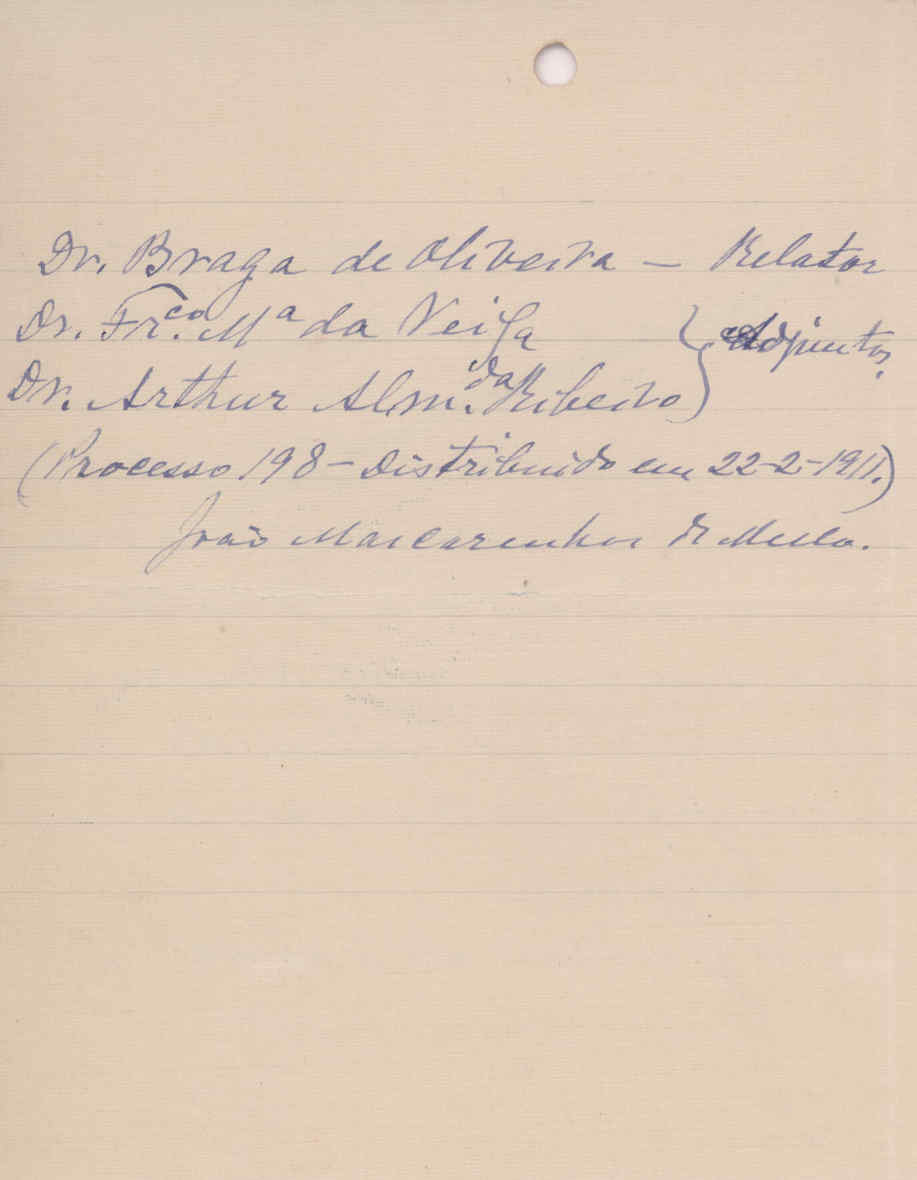 Dr. Braga de Oliveira — Relator
Dr. Fr.co Ma da Veiga } Adjuntos.
Dr. Arthur Alm.da Ribeiro
(Processo 198 - Distribuido em 22-2-1911.)
João Mascarenhas de Mello.